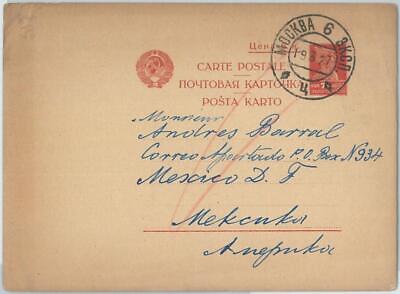 Цена
МОСКВА 6 ЭКСП
19 8 27
Ц
CARTE POSTALE
ПОЧТОВАЯ КАРТОЧКА
POŜTA KARTO
Monsieur
Andres Barral
Correo Apartado P.O. Box N 934
Mexico D. F
Мексика
Америка